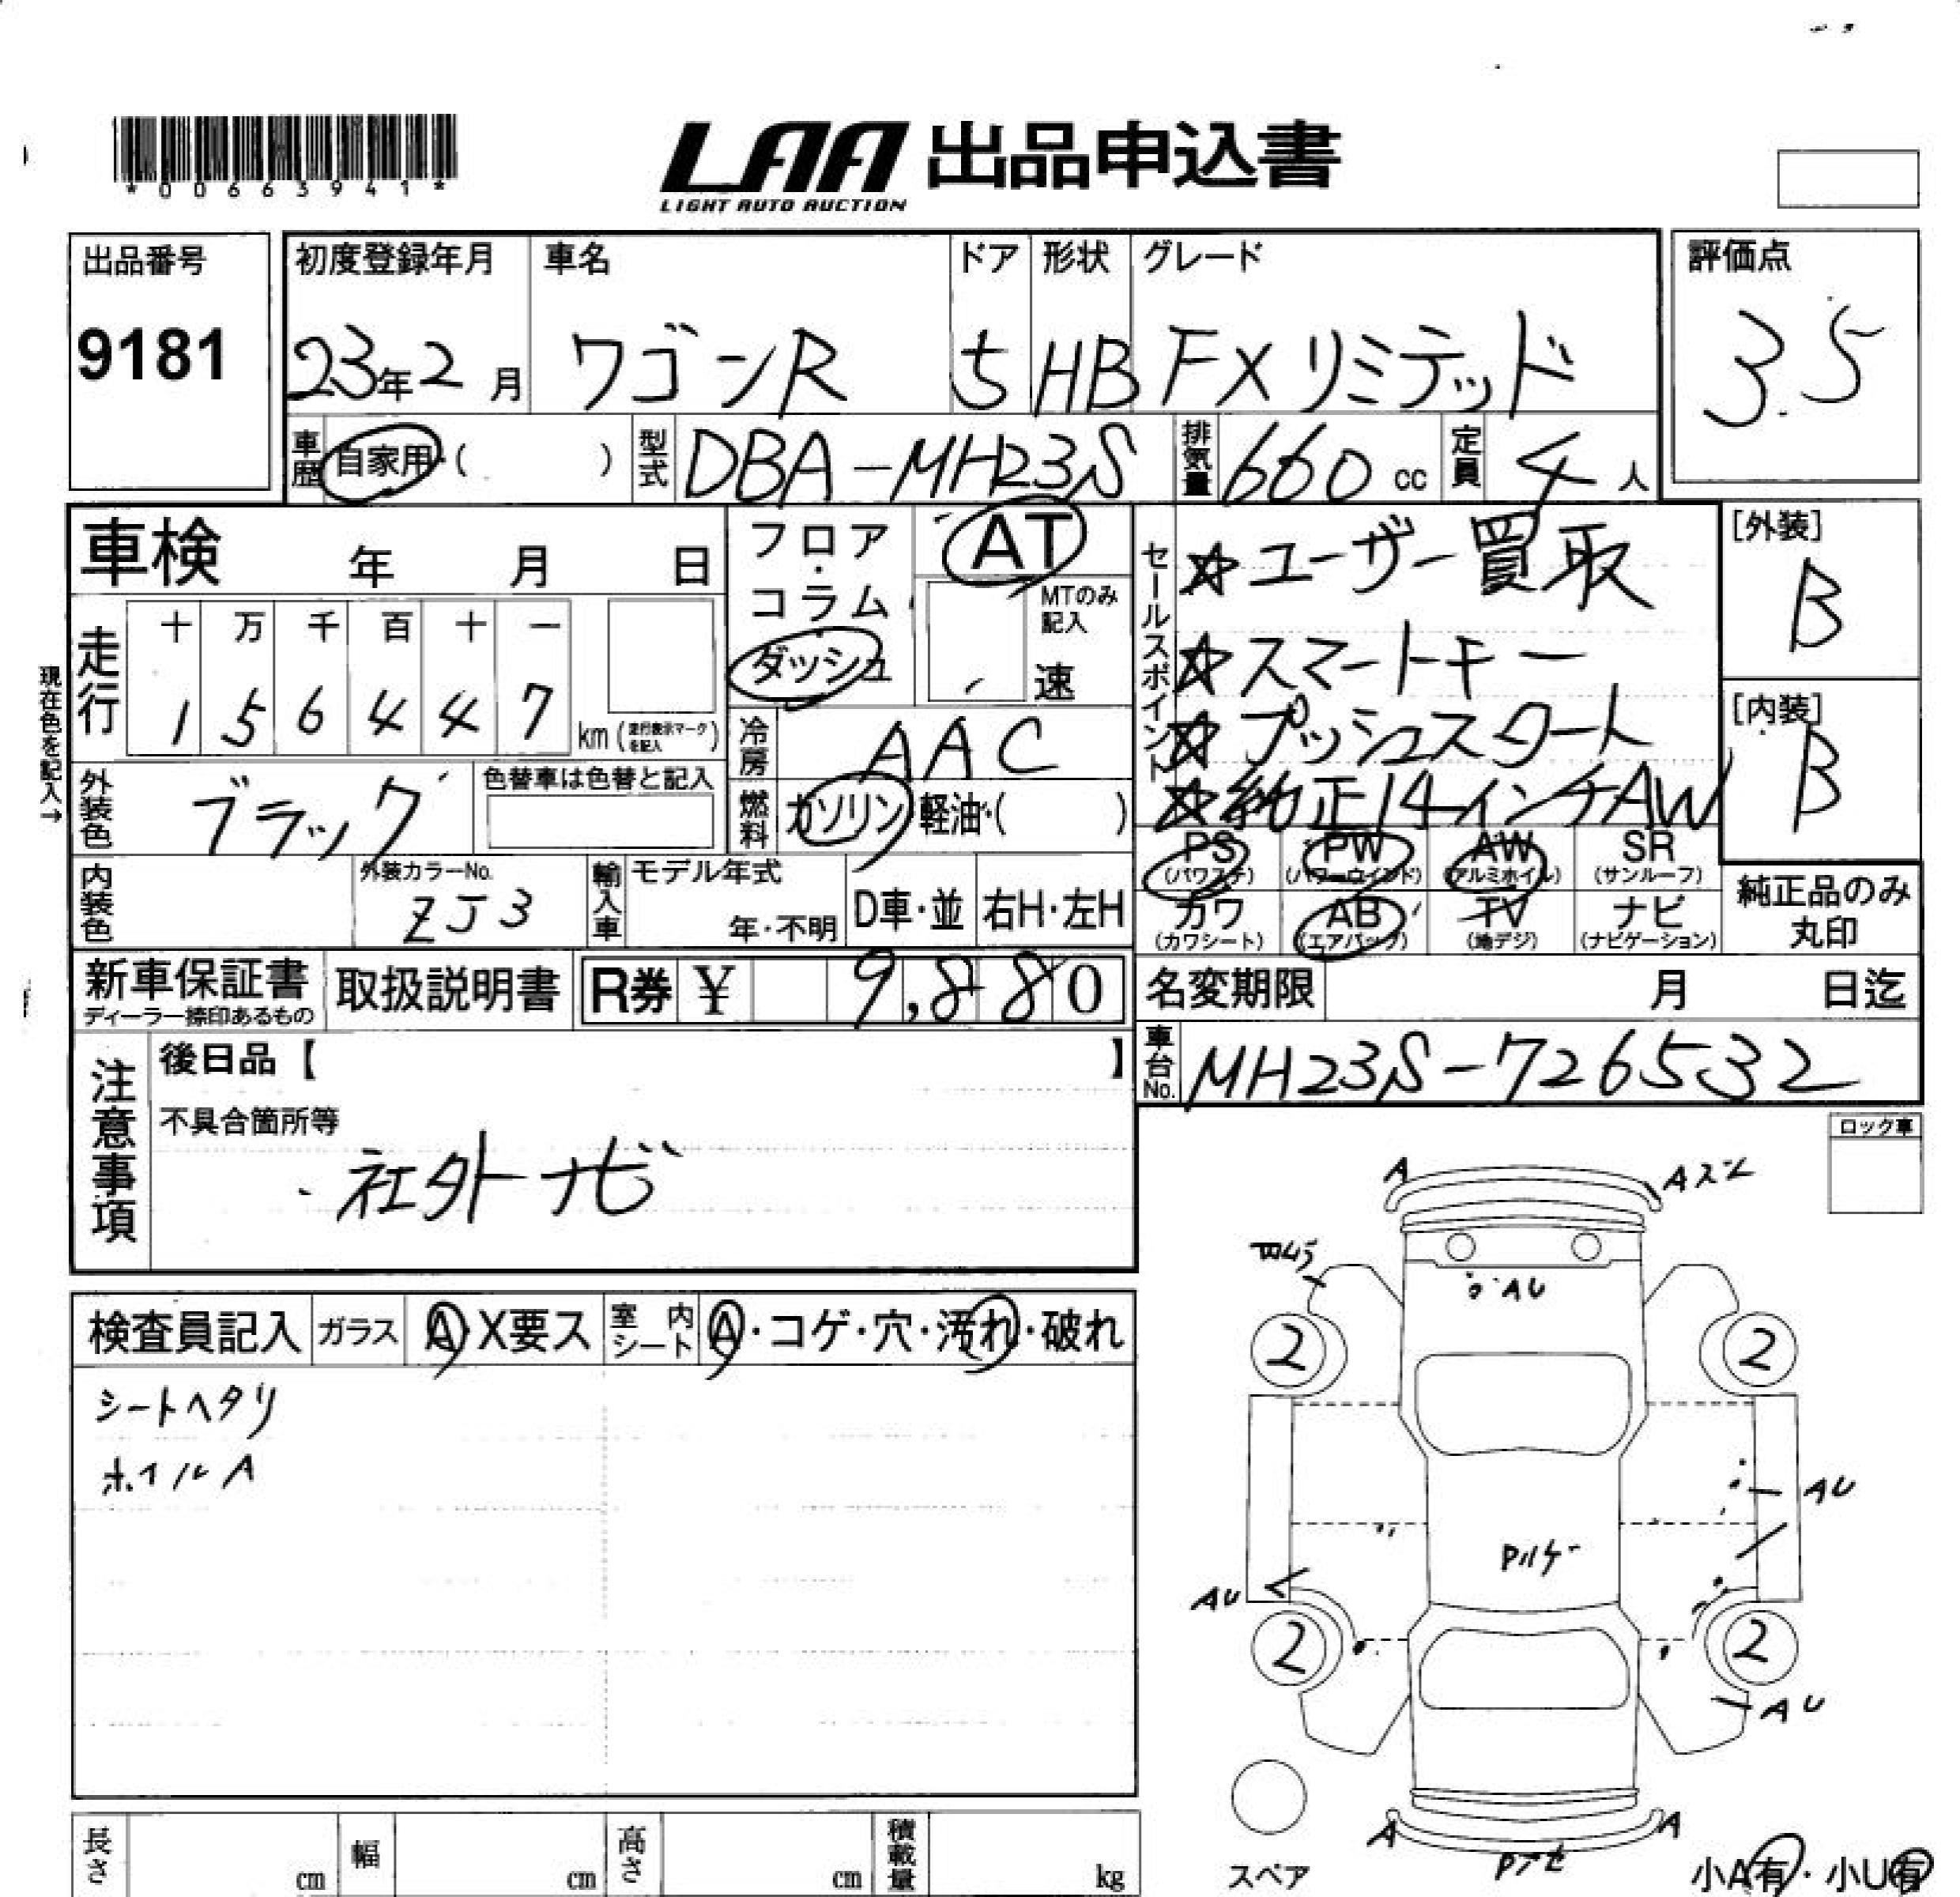 *00663941*
LAA 出品申込書
LIGHT AUTO AUCTION
出品番号
9181
初度登録年月 車名 ドア 形状 グレード
23年2月 ワゴンR 5 HB FXリミテッド
評価点
3.5
車歴 自家用・( ) 型式 DBA-MH23S 排気量 660 cc 定員 4人
車検 年 月 日
フロア・コラム・ダッシュ
AT
MTのみ記入
速
セールスポイント
☆ユーザー買取
☆スマートキー
☆プッシュスタート
☆純正14インチAW
[外装]
B
[内装]
B
現在色を記入→
走行 十 万 千 百 十 一
1 5 6 4 4 7 km (走行表示マークを記入)
冷房 AAC
外装色 ブラック 色替車は色替と記入
燃料 ガソリン・軽油・( )
PS (パワステ) PW (パワーウインド) AW (アルミホイル) SR (サンルーフ)
カワ (カワシート) AB (エアバック) TV (地デジ) ナビ (ナビゲーション)
純正品のみ丸印
内装色 外装カラーNo. ZJ3 輸入車 モデル年式 年・不明 D車・並 右H・左H
新車保証書 ディーラー捺印あるもの 取扱説明書 R券 ¥ 9,880
名変期限 月 日迄
車台No. MH23S-726532
注意事項
後日品【 】
不具合箇所等
社外ナビ
ロック車
検査員記入 ガラス A・X要ス 室内シート A・コゲ・穴・汚れ・破れ
シートヘタリ
ホイルA
A
A
AU
2 2
AU
AU
2 2
AU
A A
スペア
小A有・小U有
長さ cm 幅 cm 高さ cm 積載量 kg